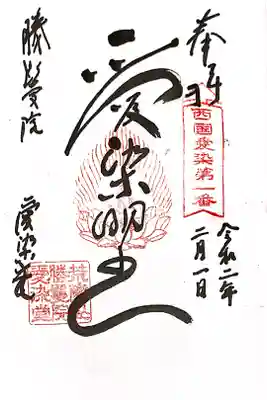 奉拝
西國愛染第一番
令和二年
二月一日
愛染明王
勝鬘院
愛染堂
勝鬘院
愛染堂